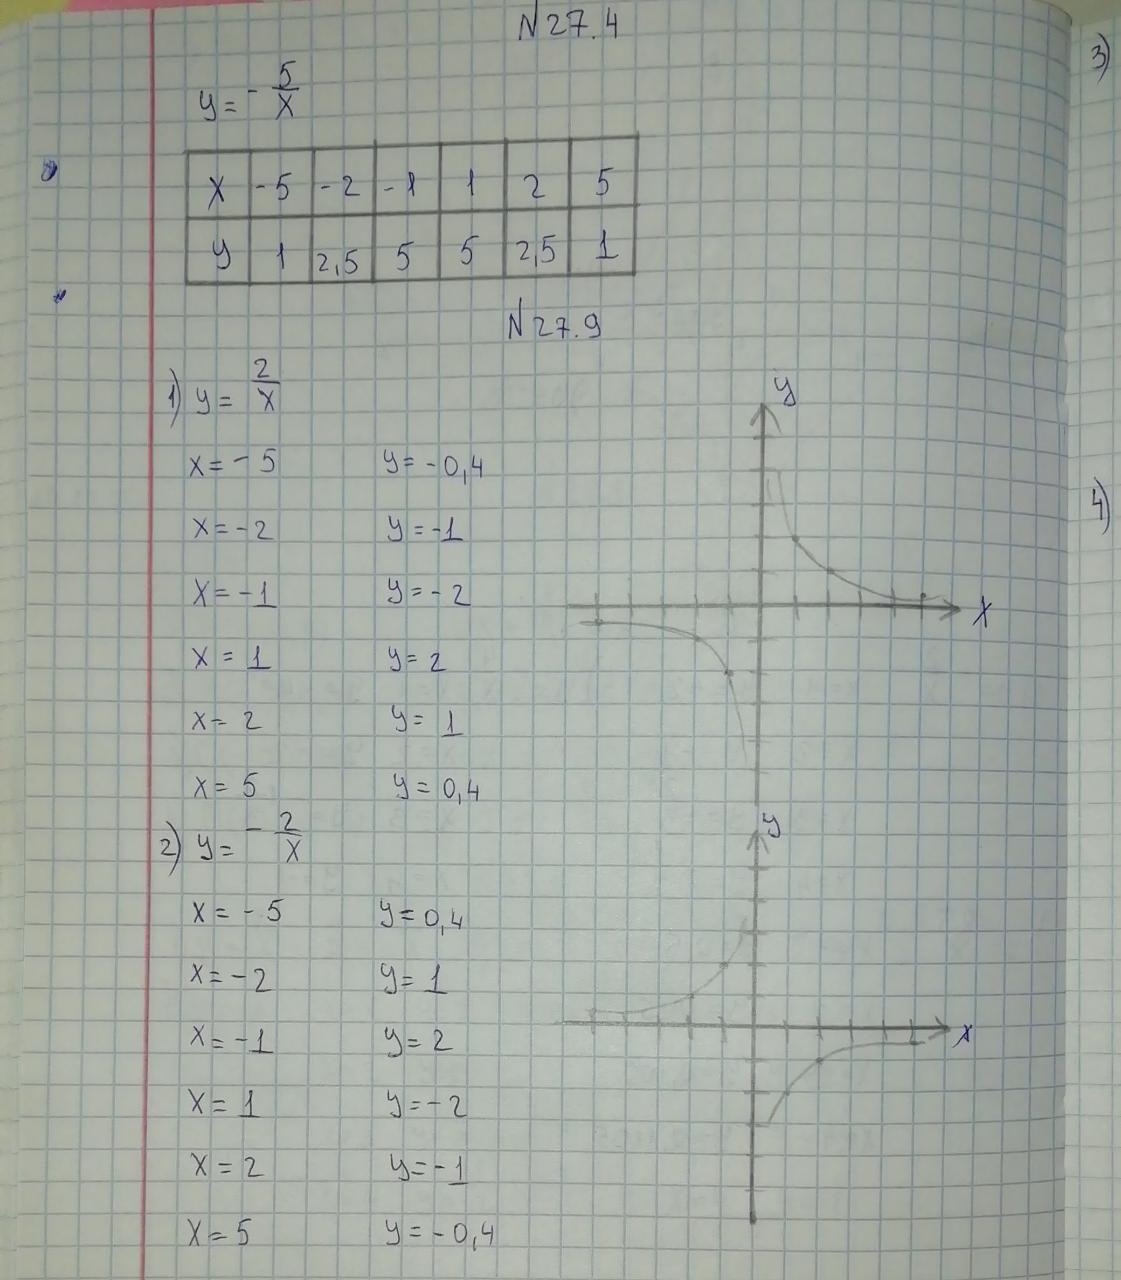 N 27.4
3)
y = - 5/x
x -5 -2 -1 1 2 5
y 1 2,5 5 5 2,5 1
N 27.9
1) y = 2/x
y
x = -5 y = -0,4
4)
x = -2 y = -1
x = -1 y = -2
x
x = 1 y = 2
x = 2 y = 1
x = 5 y = 0,4
y
2) y = - 2/x
x = -5 y = 0,4
x = -2 y = 1
x = -1 y = 2
x
x = 1 y = -2
x = 2 y = -1
x = 5 y = -0,4